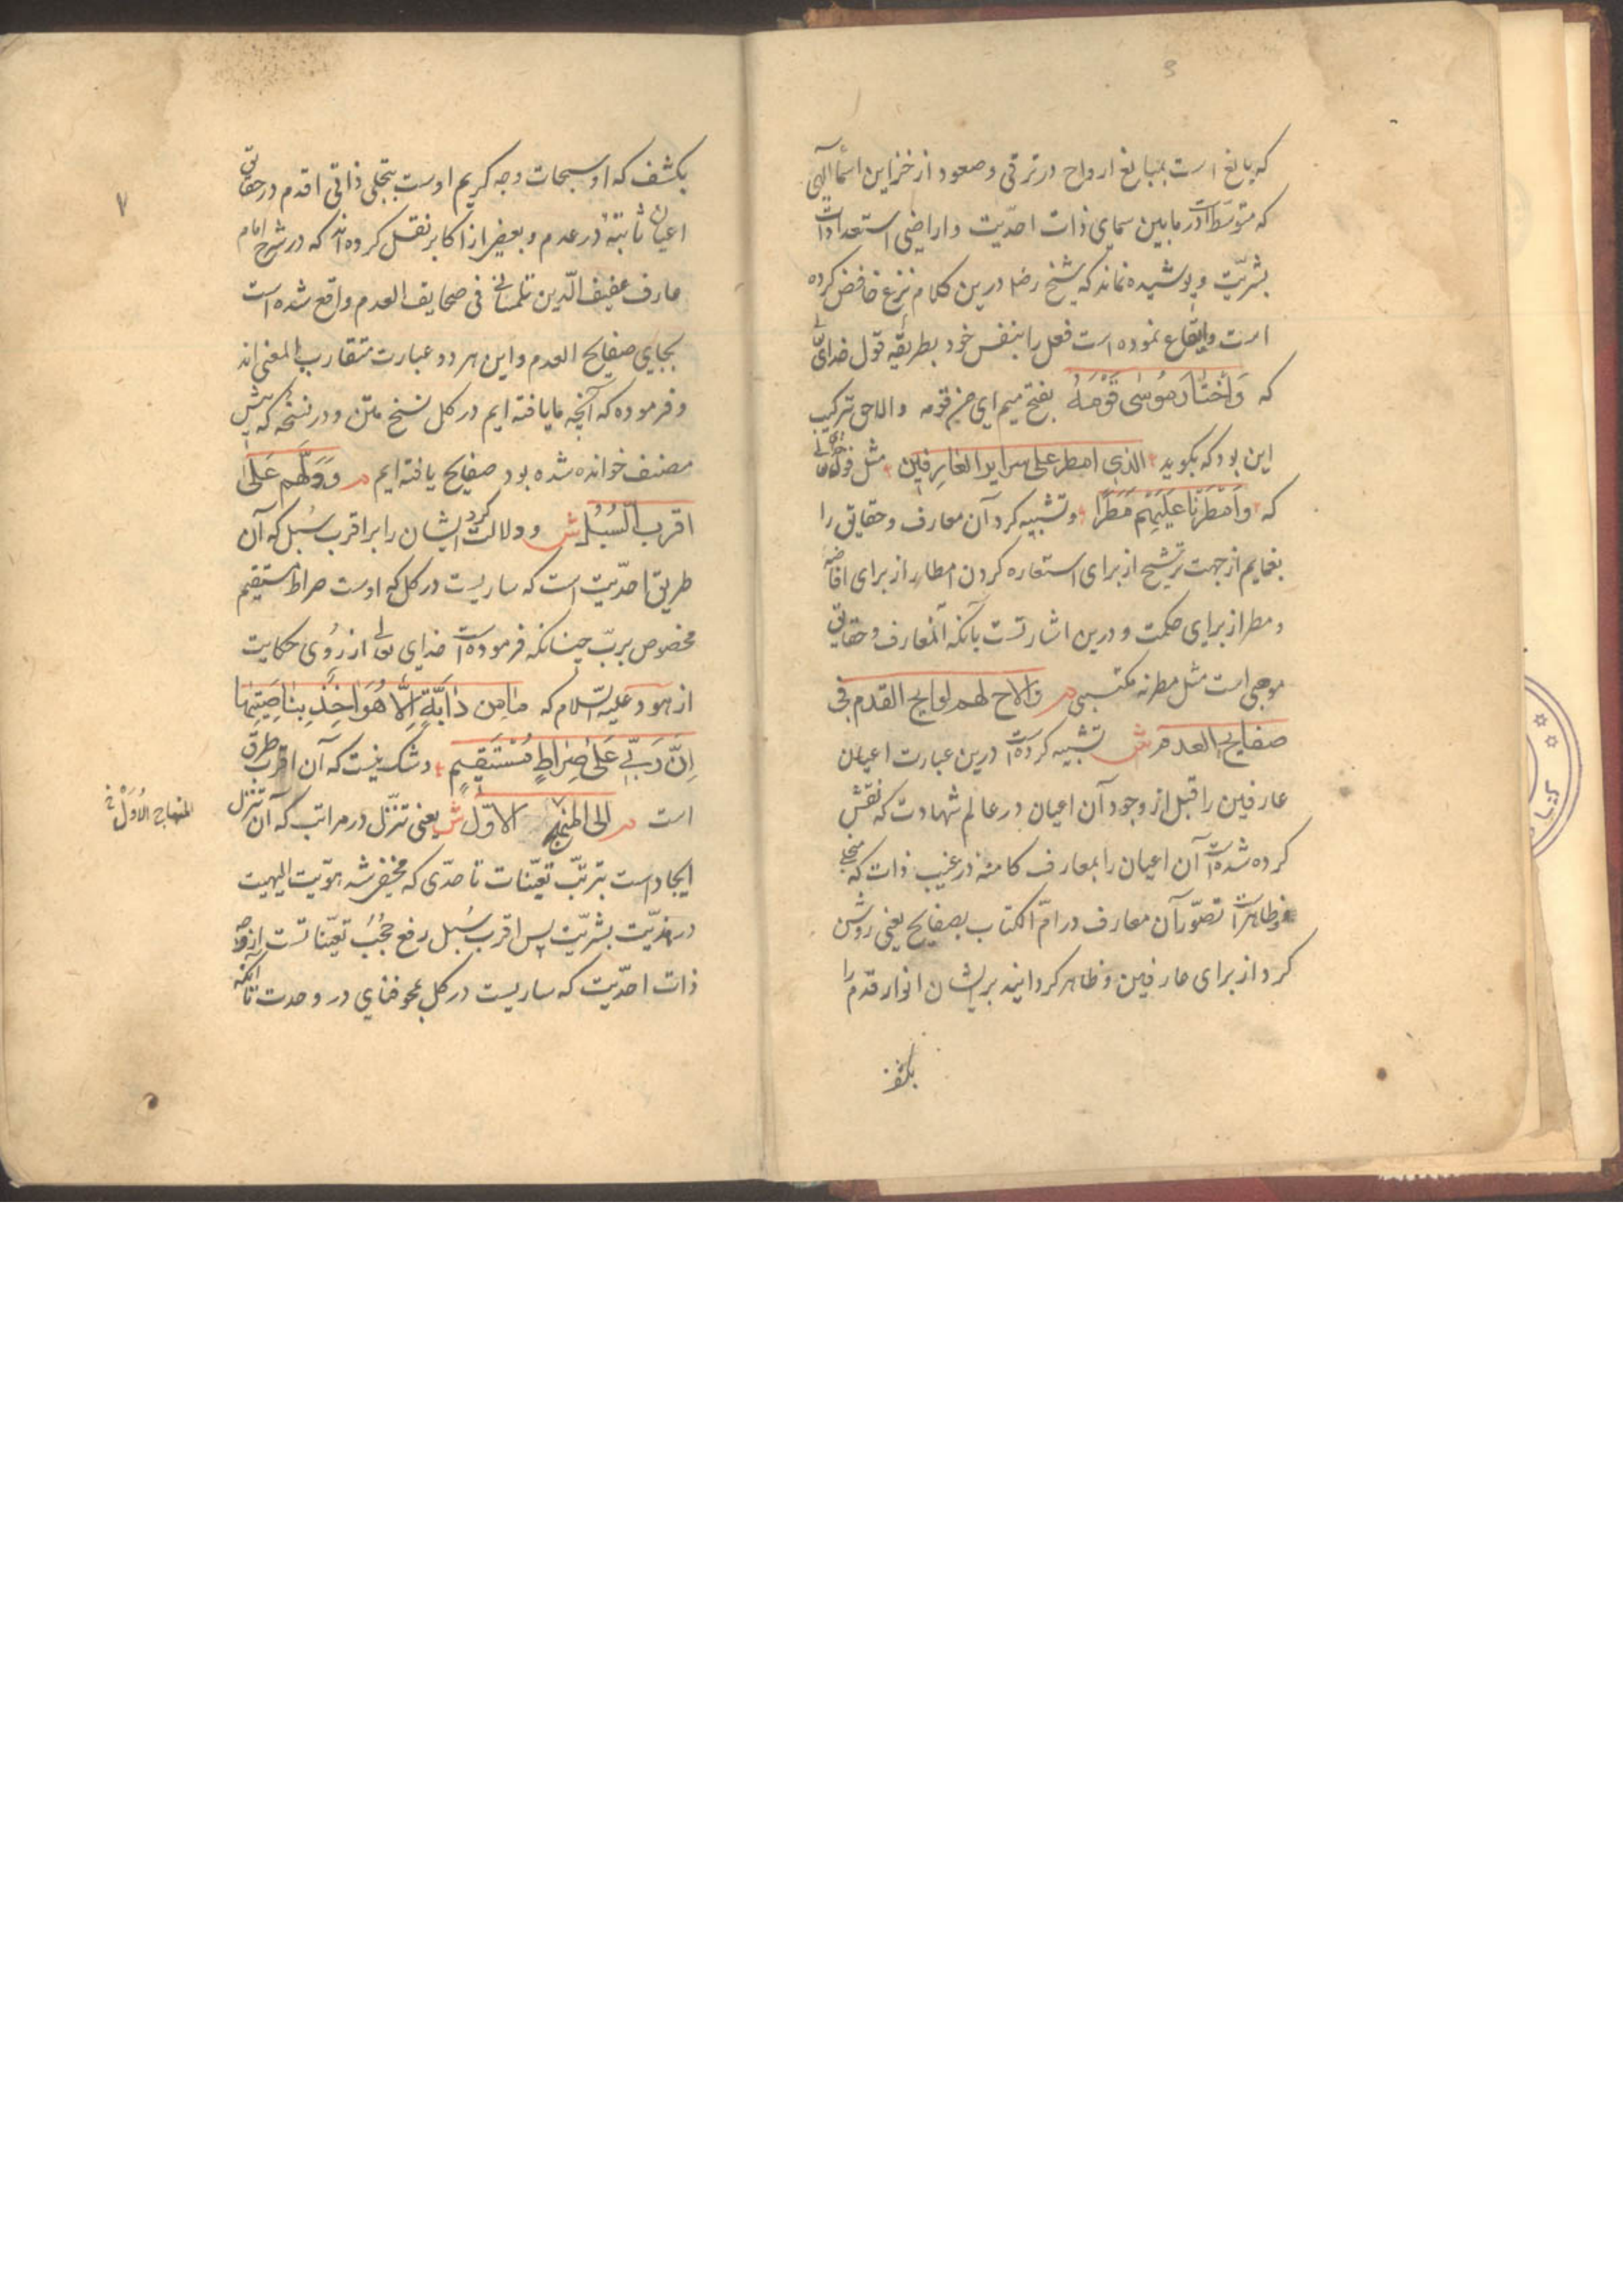 که بالغ است بمبالغ ارواح در ترقی و صعود از خزاین اسماء الهی
که متوسط است در ما بین سمای ذات احدّیت و اراضی استعدادات
بشریّت و پوشیده نماند که شیخ رض درین کلام نزع خافض کرده
است و ایقاع نموده است فعل را بنفس خود بطریقه قول خدای تع
که وَاخْتٰارَ مُوسٰی قَوْمَهُ بفتح میم ای من قومه و الا حق ترکیب
این بود که بکوید الذی امطر علی سرایر العارفین مثل قول خدای تعالی
که وَاَمْطَرْنٰا عَلَیْهِمْ مَطَرًا و تشبیه کرد آن معارف و حقایق را
بغمایم از جهت ترشیح از برای استعاره کردن امطار از برای افاضه
و مطر از برای حکمت و درین اشارتست بآنکه آن معارف و حقایق
موهبی است مثل مطر نه مکتسبی م و الاح لهم لوایح القدم فی
صفایح العدم ش تشبیه کرده است درین عبارت اعیان
عارفین را قبل از وجود آن اعیان در عالم شهادت که نقش
کرده شده است آن اعیان را بمعارف کامنه در غیب ذات که
و ظاهر است تصوّر آن معارف در امّ الکتاب بصفایح یعنی روشن
کرد از برای عارفین و ظاهر کردانید بر ایشان انوار قدم را
بکشف
٧
بکشف که او سبحات وجه کریم اوست بتجلی ذاتی اقدم در حقایق
اعیان ثابته در عدم و بعضی از اکابر نقل کرده اند که در شرح امام
عارف عفیف الدّین تلمسانی فی صحایف العدم واقع شده است
بجای صفایح العدم و این هر دو عبارت متقارب المعنی اند
و فرموده که آنچه ما یافته ایم در کل نسخ متن و در نسخه که پیش
مصنف خوانده شده بود صفایح یافته ایم م وَدَلَّهم عَلیٰ
اقرب السُبُل ش و دلالت کرد ایشان را بر اقرب سُبل که آن
طریق احدّیت است که ساریست در کل که اوست صراط مستقیم
مخصوص بربّ چنانکه فرموده است خدای تعالی از رُوی حکایت
از هود علیه السّلام که مٰا مِن دٰابَّةٍ اِلّا هُوَ اٰخِذٌ بِنٰاصِیَتِهٰا
اِنَّ رَبّی عَلیٰ صِرٰاطٍ مُسْتَقیمٍ و شک نیست که آن اقرب طرق
است م الی المنهج الاوّل ش یعنی تنزّل در مراتب که آن تنزل
المنهاج الاوّل
ایجاد است بترتّب تعیّنات تا حدّی که مختفی شد هوّیت الهیت
در هذیّت بشریّت پس اقرب سُبل رفع حُجُب تعیّناتست از وجه
ذات احدّیت که ساریست در کل بمحو فنای در وحدت تا آنکه